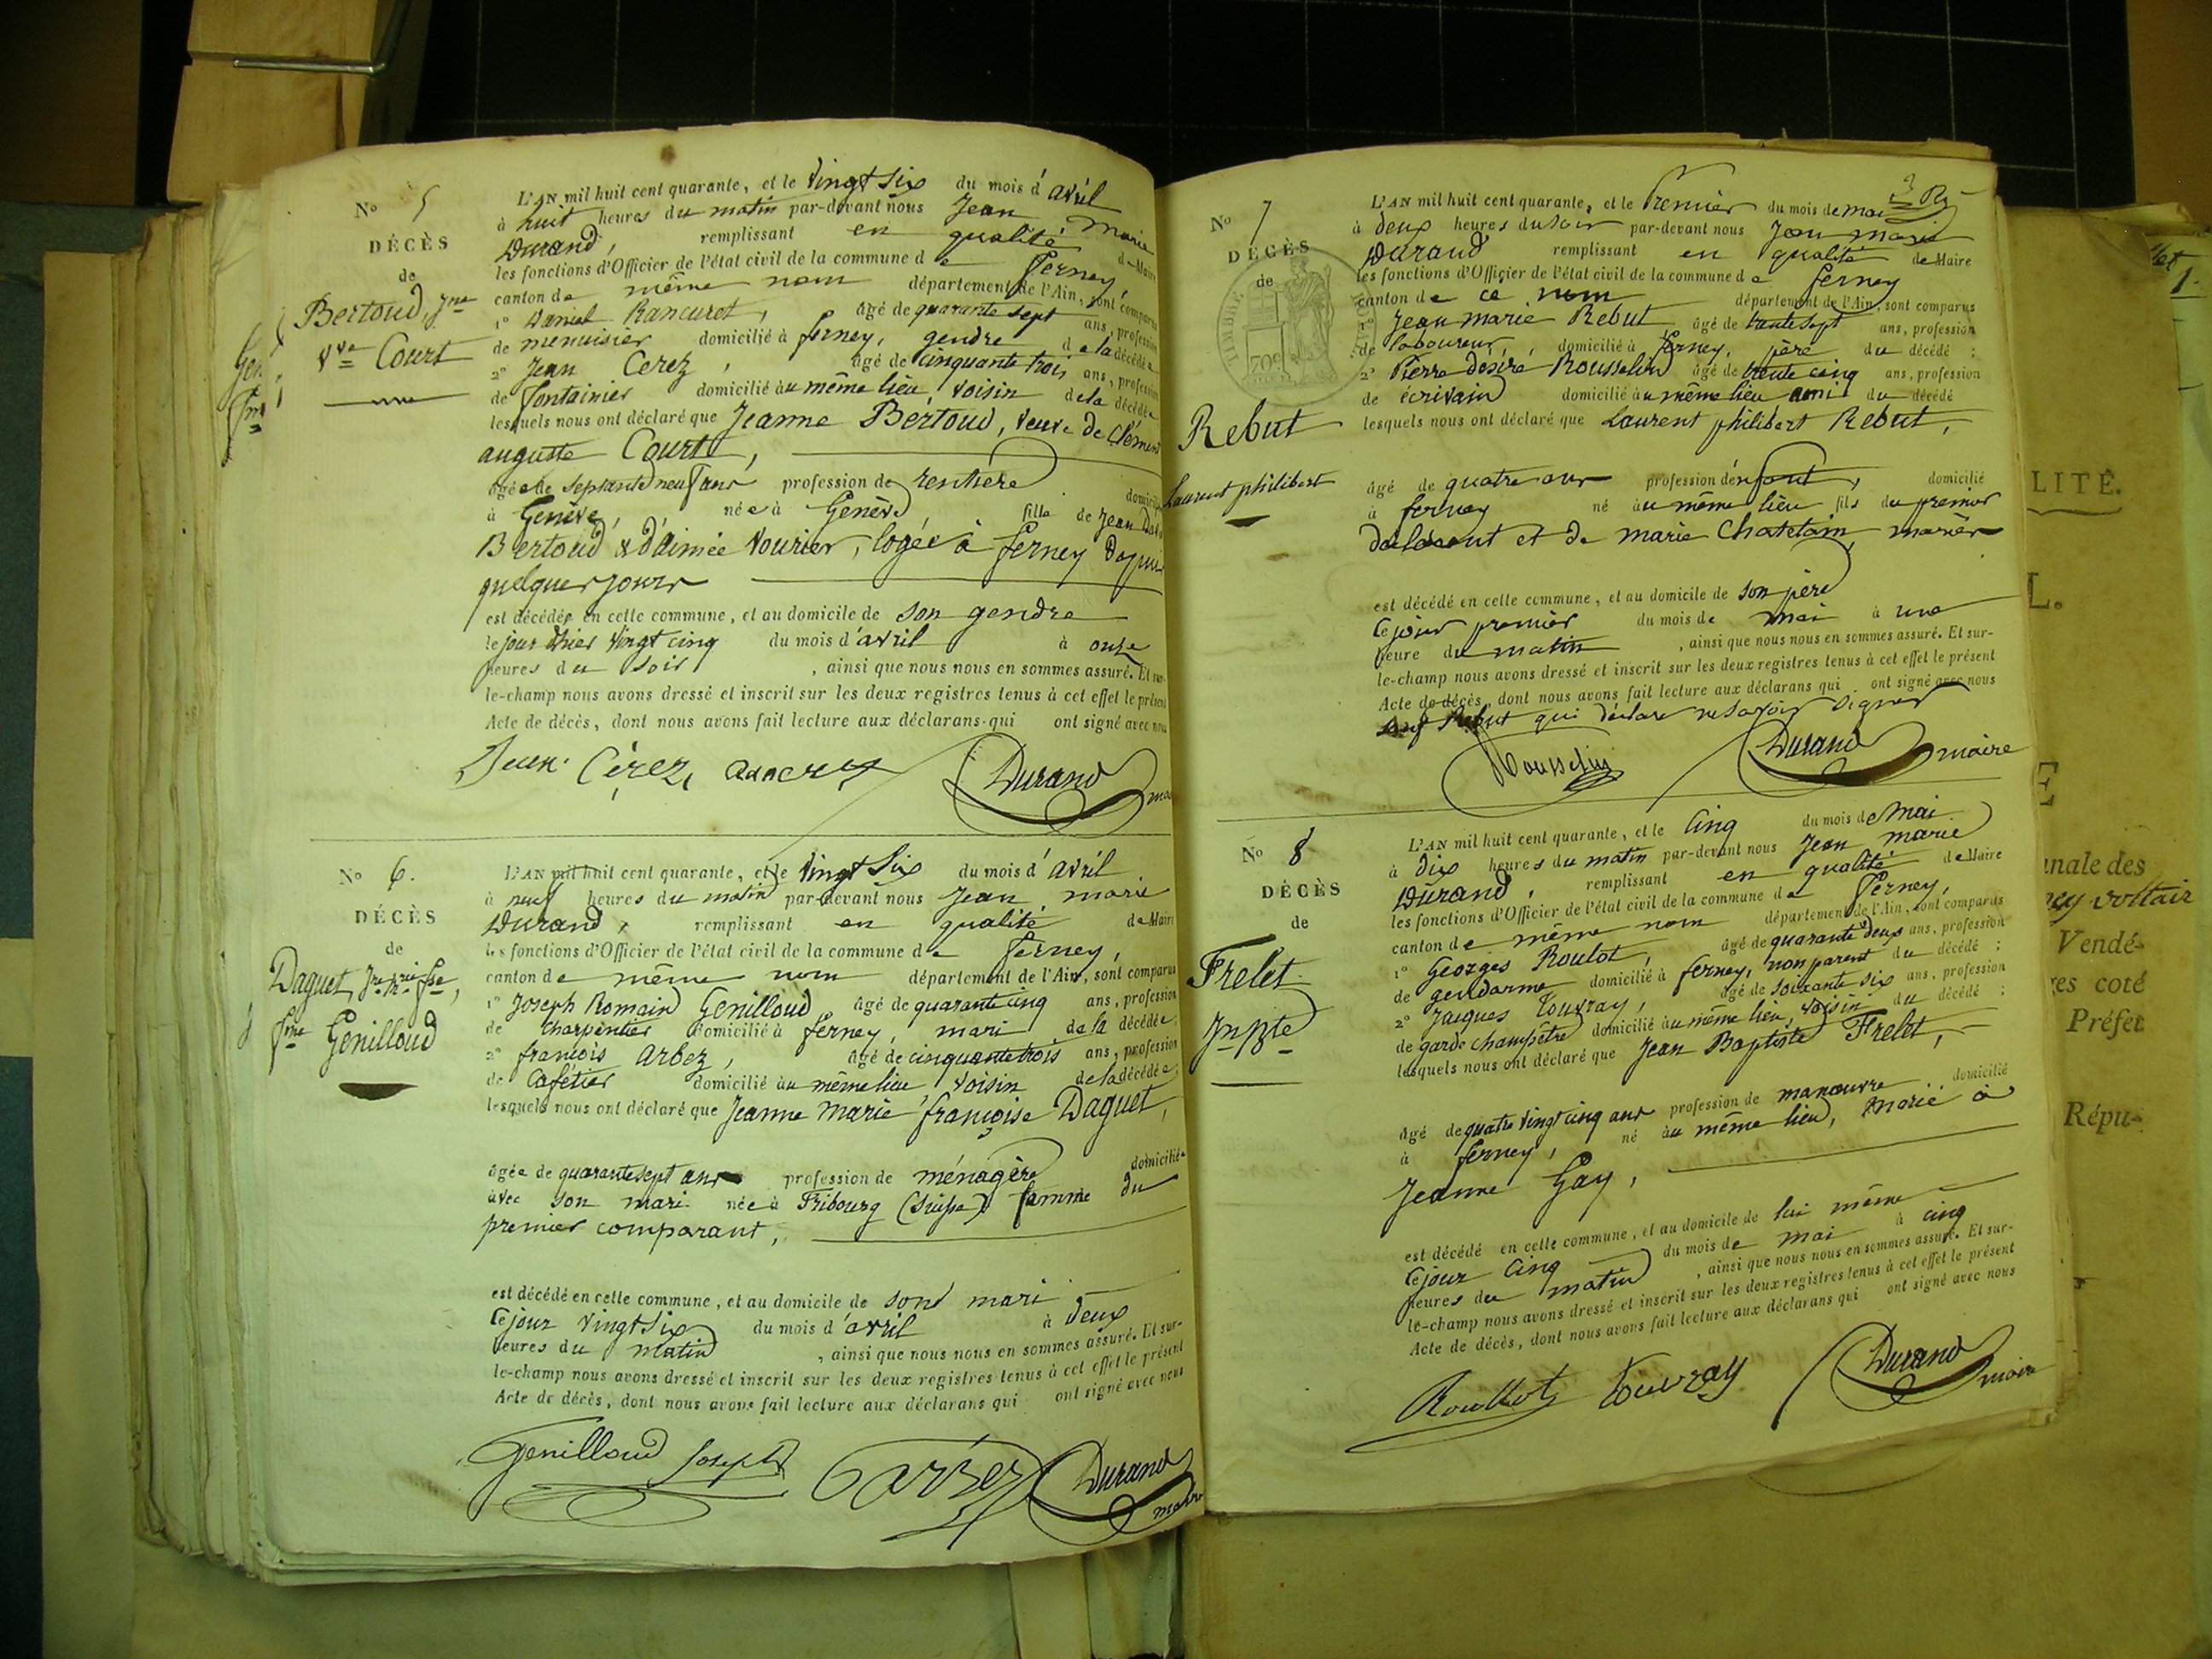 No 5
DÉCÈS
de
Bertoud, Jne
Vve Court
L'AN mil huit cent quarante, et le vingt six du mois d'avril
à huit heures du matin par-devant nous Jean Marie
Durand, remplissant en qualité de Maire
les fonctions d'Officier de l'état civil de la commune de Ferney,
canton de même nom département de l'Ain, sont comparus
1° Daniel Rancurot, âgé de quarante sept ans, profession
de menuisier domicilié à ferney, gendre de la décédée
2° Jean Cerez, âgé de cinquante trois ans, profession
de fontainier domicilié au même lieu, voisin de la décédée
lesquels nous ont déclaré que Jeanne Bertoud, veuve de Clément
auguste Court,
âgée de septante neuf ans profession de rentière domiciliée
à Genève, née à Genève, fille de Jean
Bertoud & d'aimée Vourier, logée à ferney depuis
quelques jours
est décédée en cette commune, et au domicile de son gendre
le jour d'hier vingt cinq du mois d'avril à onze
heures du soir, ainsi que nous nous en sommes assuré. Et sur-
le-champ nous avons dressé et inscrit sur les deux registres tenus à cet effet le présent
Acte de décès, dont nous avons fait lecture aux déclarans qui ont signé avec nous
Jean Cérez, Durand
No 6.
DÉCÈS
de
Daguet, Jne Mie fse,
fme Genilloud
L'AN mil huit cent quarante, et le vingt six du mois d'avril
à neuf heures du matin par-devant nous Jean marie
Durand, remplissant en qualité de Maire
les fonctions d'Officier de l'état civil de la commune de ferney,
canton de même nom département de l'Ain, sont comparus
1° Joseph Romain Genilloud âgé de quarante cinq ans, profession
de charpentier domicilié à ferney, mari de la décédée
2° françois Arbez, âgé de cinquante trois ans, profession
de Cafetier domicilié au même lieu, voisin de la décédée
lesquels nous ont déclaré que Jeanne marie françoise Daguet,
âgée de quarante sept ans profession de ménagère domiciliée
avec son mari née à Fribourg (Suisse) femme du
premier comparant,
est décédé en cette commune, et au domicile de son mari
ce jour vingt six du mois d'avril à deux
heures du matin, ainsi que nous nous en sommes assuré. Et sur-
le-champ nous avons dressé et inscrit sur les deux registres tenus à cet effet le présent
Acte de décès, dont nous avons fait lecture aux déclarans qui ont signé avec nous
Genilloud Joseph Arbez Durand
maire
No 7
DÉCÈS
de
TIMBRE
70c
Rebut
Laurent philibert
L'AN mil huit cent quarante, et le Premier du mois de mai
à deux heures du soir par-devant nous Jean marie
Durand remplissant en qualité de Maire
les fonctions d'Officier de l'état civil de la commune de ferney
canton de ce nom département de l'Ain, sont comparus
1° Jean marie Rebut âgé de trente sept ans, profession
de laboureur, domicilié à ferney, père du décédé;
2° Pierre désiré Rousselin âgé de trente cinq ans, profession
de écrivain domicilié au même lieu ami du décédé
lesquels nous ont déclaré que Laurent philibert Rebut,
âgé de quatre ans profession d'enfant, domicilié
à ferney né au même lieu fils du premier
déclarant et de marie Chatelain, mariés
est décédé en cette commune, et au domicile de son père
ce jour premier du mois de mai à une
heure du matin, ainsi que nous nous en sommes assuré. Et sur-
le-champ nous avons dressé et inscrit sur les deux registres tenus à cet effet le présent
Acte de décès, dont nous avons fait lecture aux déclarans qui ont signé avec nous
sauf Rebut qui déclare ne savoir signer
Rousselin Durand maire
No 8
DÉCÈS
de
Frelet
Jn Bte
L'AN mil huit cent quarante, et le Cinq du mois de Mai
à dix heures du matin par-devant nous Jean marie
Durand, remplissant en qualité de Maire
les fonctions d'Officier de l'état civil de la commune de Ferney,
canton de même nom département de l'Ain, sont comparus
1° Georges Roulot, âgé de quarante deux ans, profession
de gendarme domicilié à ferney, non parent du décédé;
2° Jacques Touvray, âgé de soixante six ans, profession
de garde champêtre domicilié au même lieu, voisin du décédé;
lesquels nous ont déclaré que Jean Baptiste Frelet,
âgé de quatre vingt cinq ans profession de manœuvre domicilié
à ferney, né au même lieu, marié à
Jeanne Gay,
est décédé en cette commune, et au domicile de lui même
ce jour cinq du mois de mai à cinq
heures du matin, ainsi que nous nous en sommes assuré. Et sur-
le-champ nous avons dressé et inscrit sur les deux registres tenus à cet effet le présent
Acte de décès, dont nous avons fait lecture aux déclarans qui ont signé avec nous
Roullot Touvray Durand
maire
LITÉ.
L.
E
nale des
ey voltair
Vendé-
es coté
Préfet
Répu-